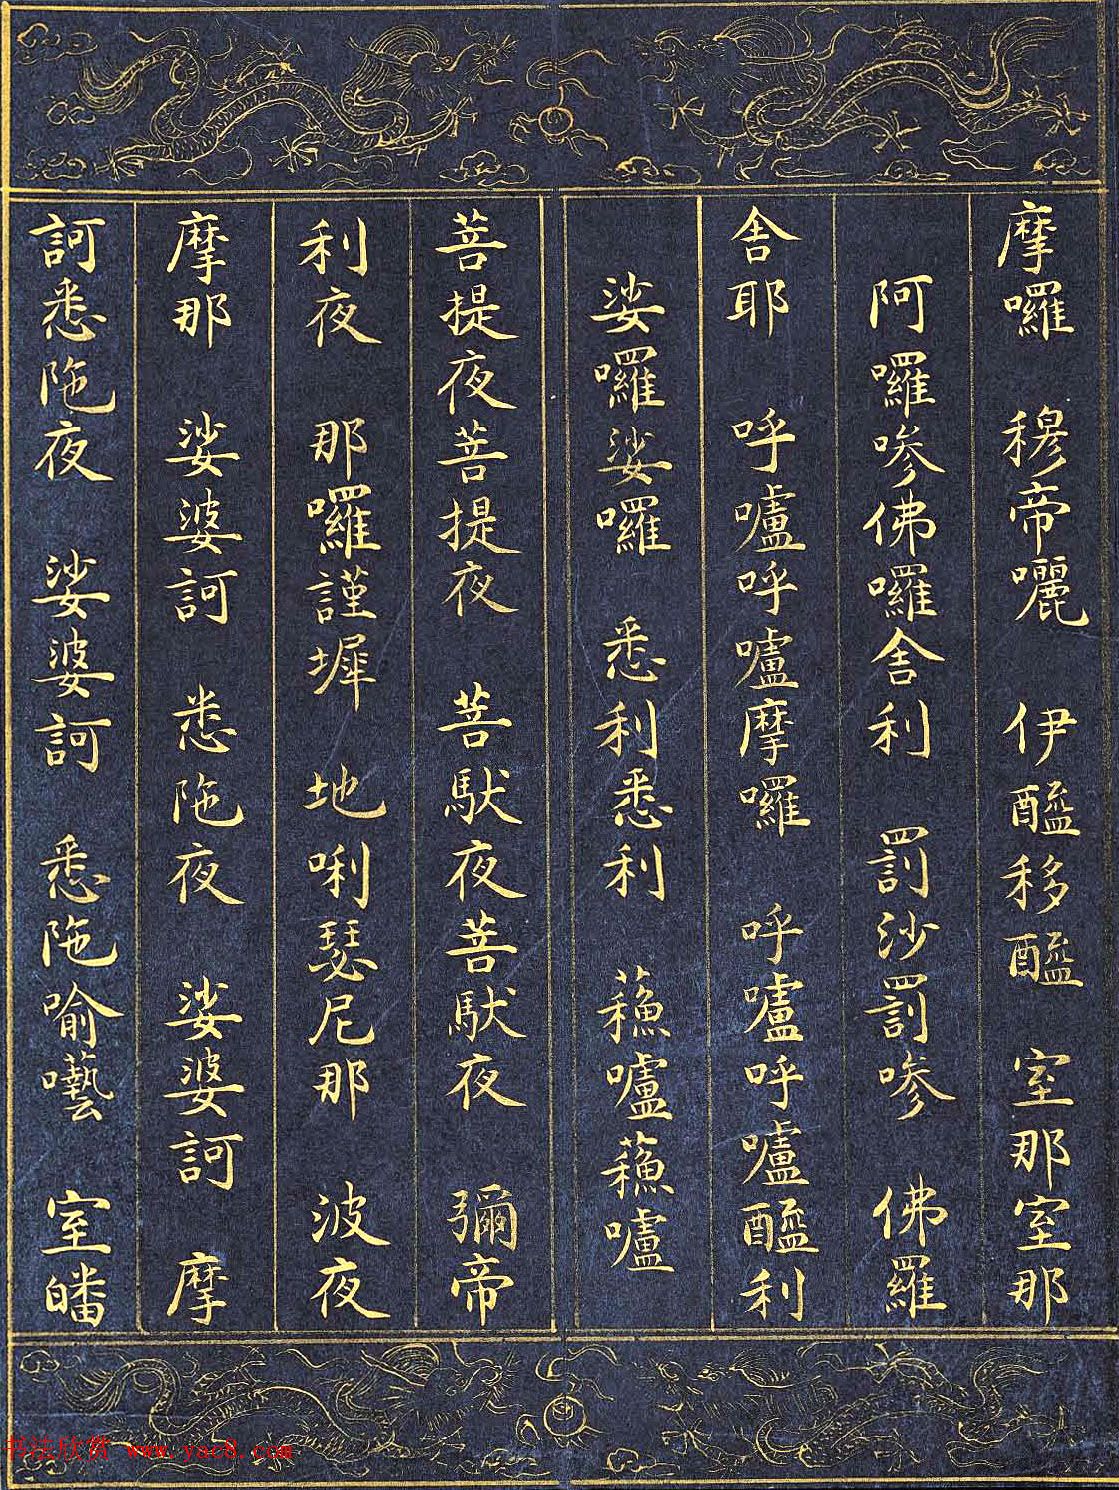 摩囉 穆帝囇 伊醯移醯 室那室那
阿囉嘇佛囉舍利 罰沙罰嘇 佛羅
舍耶 呼嚧呼嚧摩囉 呼嚧呼嚧醯利
娑囉娑囉 悉利悉利 蘓嚧蘓嚧
菩提夜菩提夜 菩馱夜菩馱夜 彌帝
利夜 那囉謹墀 地唎瑟尼那 波夜
摩那 娑婆訶 悉陁夜 娑婆訶 摩
訶悉陁夜 娑婆訶 悉陁喻囈 室皤
书法欣赏 www.yac8.com